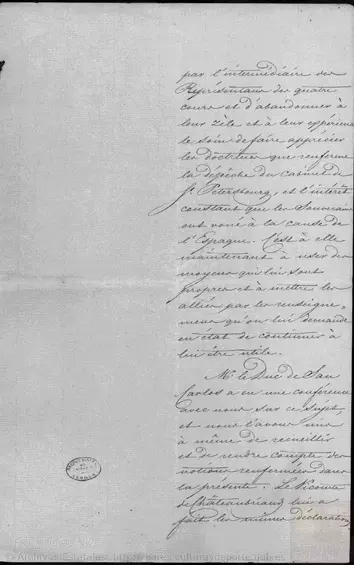 par l'intermédiaire des
Représentans des quatre
cours et d'abandonner à
leur zèle et à leur expérience
le soin de faire apprécier
les doctrines que renferme
la dépêche du cabinet de
St Pétersbourg, et l'intérêt
constant que les Souverains
ont voué à la cause de
l'Espagne. C'est à elle
maintenant à user des
moyens qui lui sont
propres et à mettre les
alliés par les renseigne-
mens qu'on lui demande
en état de continuer à
lui être utile.
Mr le Duc de San
Carlos a eu une conférence
avec nous sur ce sujet,
et nous l'avons mis
à même de recueillir
et de rendre compte des
notions renfermées dans
la présente. Le Vicomte
de Châteaubriand lui a
fait les mêmes déclarations